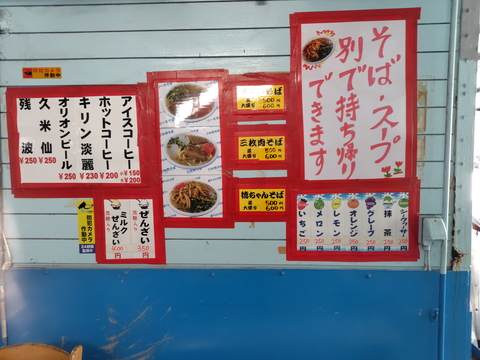 そば・スープ
別で持ち帰り
できます
防犯カメラ
作動中
アイスコーヒー 小¥150 大¥200
ホットコーヒー ¥200
キリン淡麗 ¥230
オリオンビール ¥250
久米仙 ¥250
残波 ¥250
そば
並 500円
大盛り 600円
三枚肉そば
並 500円
大盛り 600円
徳ちゃんそば
並 500円
大盛り 600円
防犯カメラ
作動中
24時間
ぜんざい 350円
ミルクぜんざい 400円
シークヮーサー 250円
抹茶 250円
グレープ 250円
オレンジ 250円
レモン 250円
メロン 250円
いちご 250円